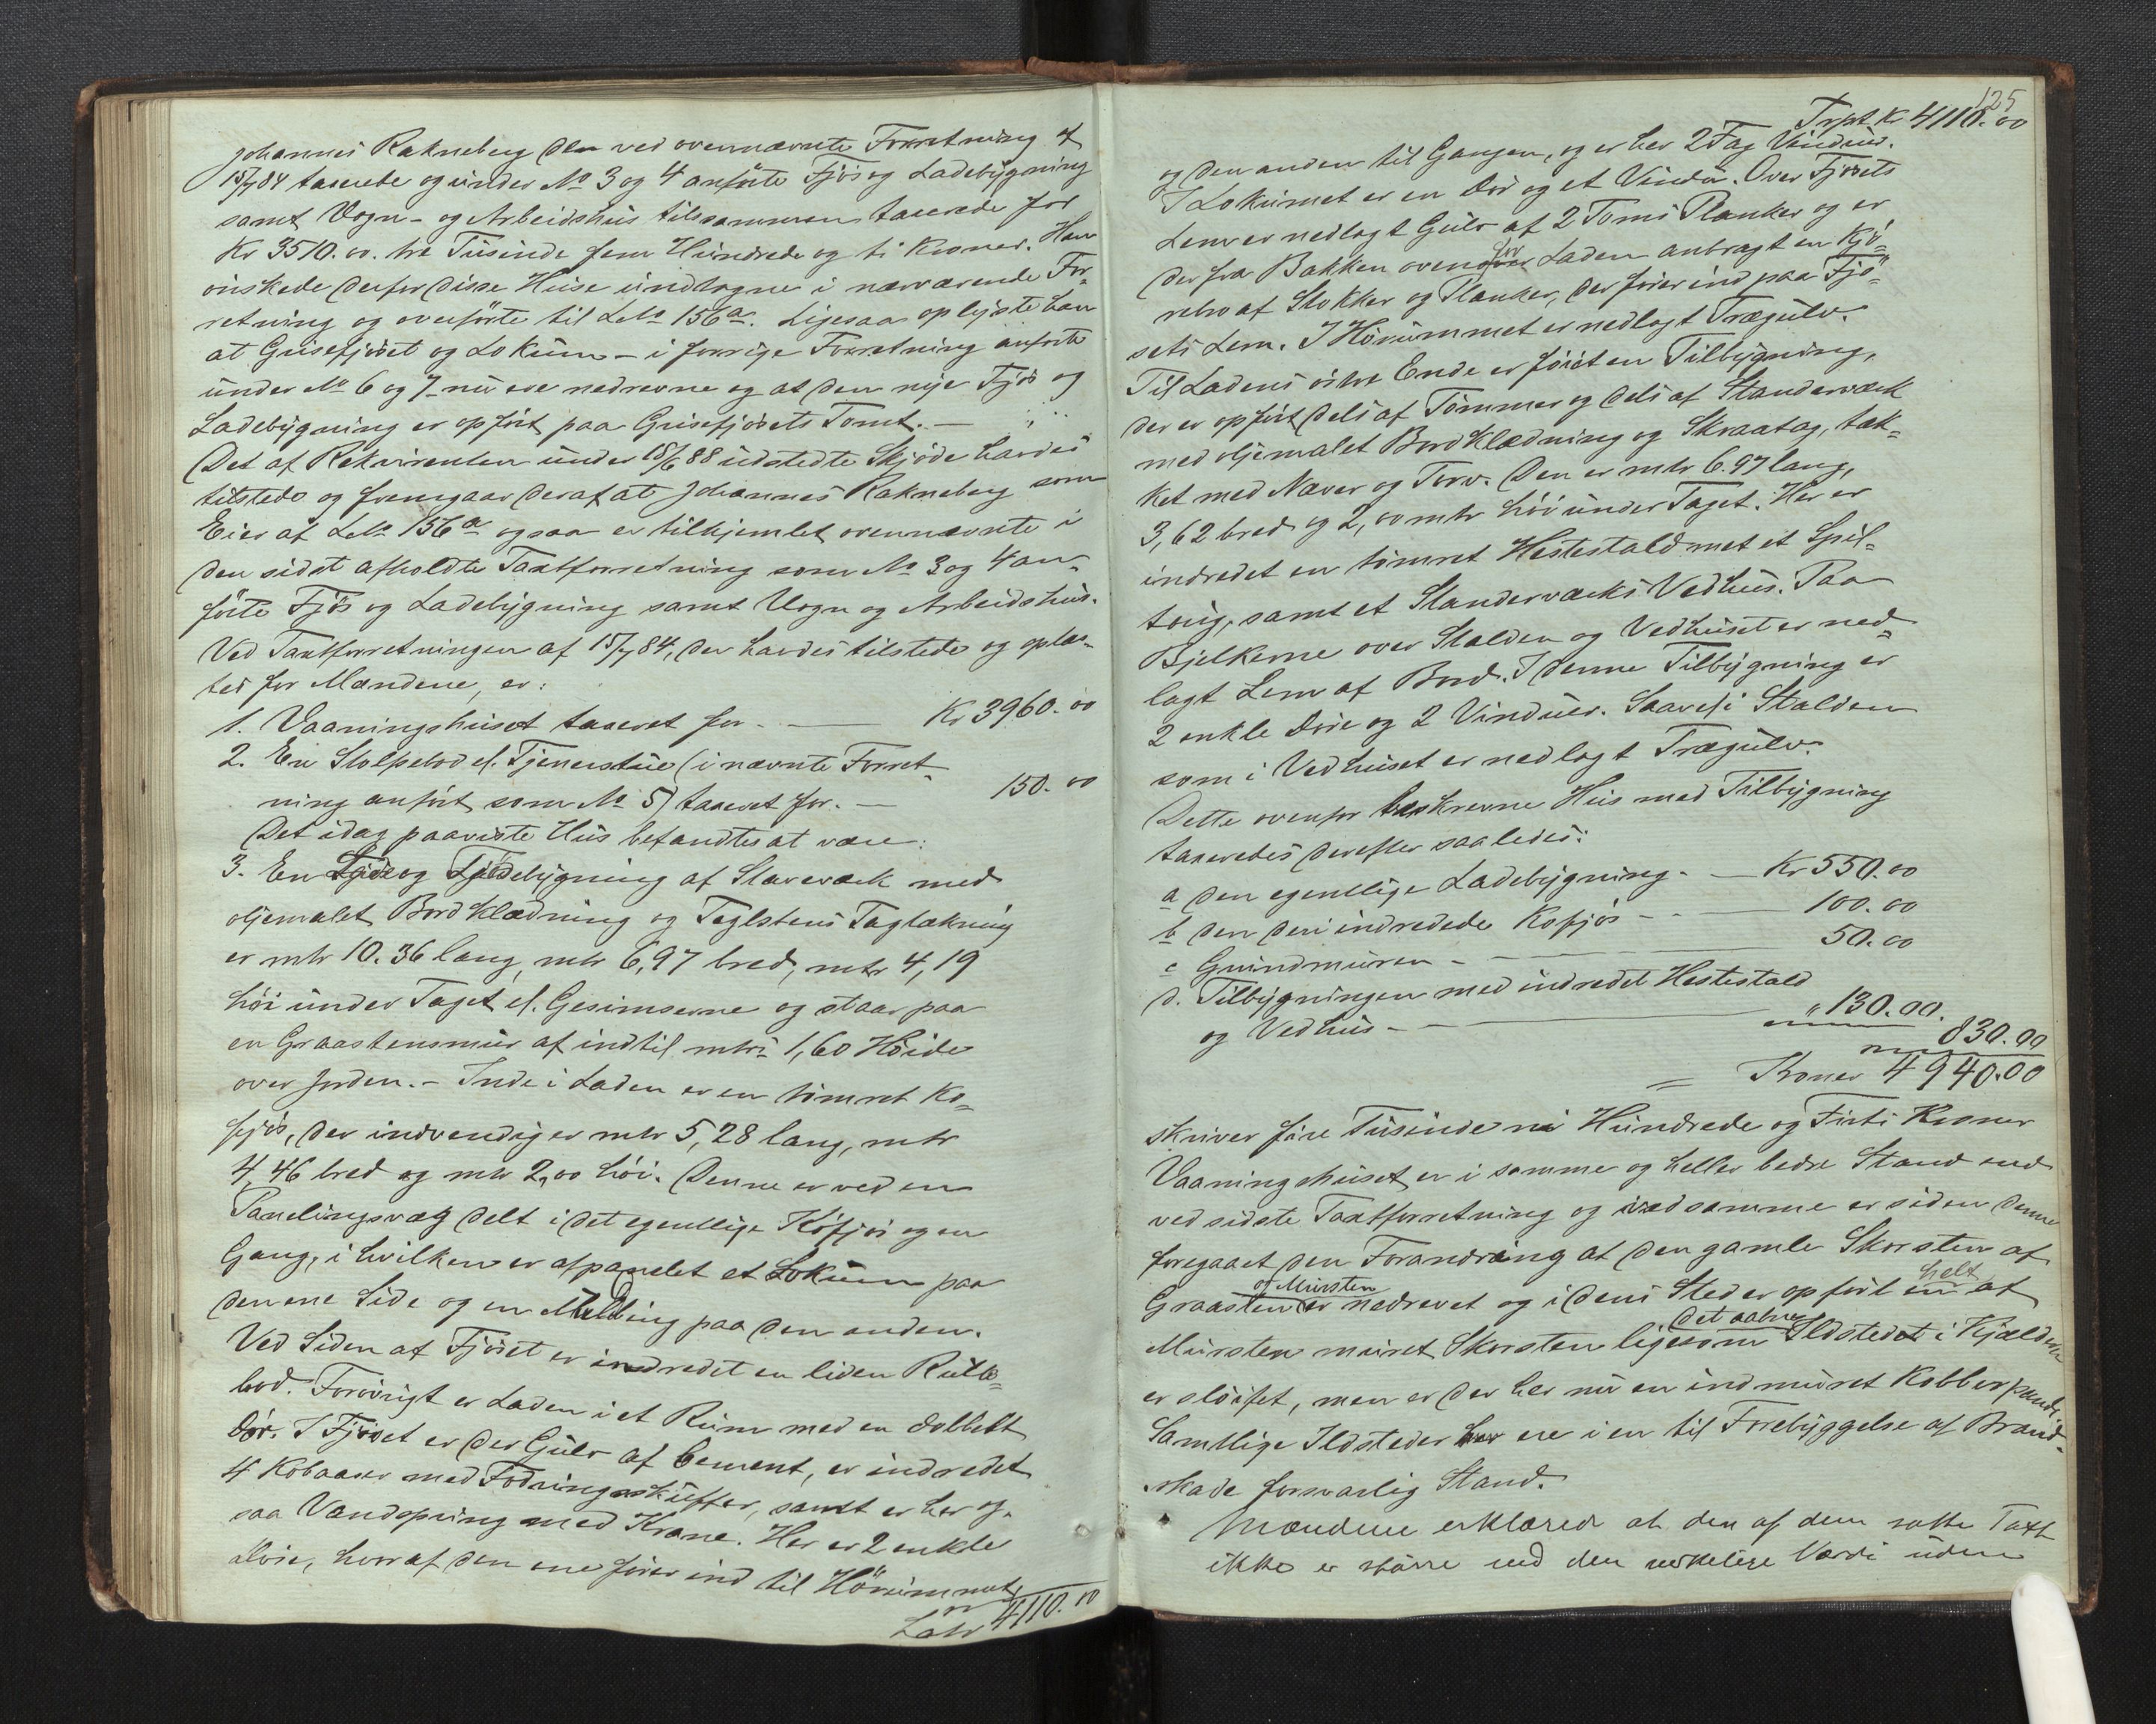 Johannes Rakneberg den ved ovennævnte Forretning af
15/7 84 taxerede og under No 3 og 4 anförte Fjös og Ladebygning
samt Vogn- og Arbeidshus tilsammen taxerede for
Kr 3510.00. tre Tusinde fem Hundrede og ti Kroner. Han
önskede derfor disse Huse undtagne i nærværende For-
retning og overförte til LNo 156a. Ligesaa oplyste han
at Grisefjöset og Lokum - i forrige Forretning anförte
under No 6 og 7 - nu ere nedrevne og at den nye Fjös og
Ladebygning er opfört paa Grisefjösets Tomt. -
Det af Rekvirenten under 18/6 88 udstedte Skjöde havdes
tilstede og fremgaar deraf at Johannes Rakneberg som
Eier af LNo 156a ogsaa er tilhjemlet ovennævnte i
den sidst afholdte Taxtforretning som No 3 og 4 an-
förte Fjös og Ladebygning samt Vogn og Arbeidshus.
Ved Taxtforretningen af 15/7 84, der havdes tilstede og oplæs-
tes for Mændene, er:
1. Vaaningshuset taxeret for - Kr 3960.00
2. En Stolpebod el. Tjenerstue (i nævnte Forret-
ning anfört som No 5) taxeret for. - 150.00
Det idag paaviste Hus befandtes at være:
3. En og bygning af Staveværk med
oljemalet Bordklædning og Teglstens Tagtækning
er mtr 10.36 lang, mtr 6,97 bred, mtr 4,19
höi under Taget el. Gesimserne og staar paa
en Graastensmur af indtil mtrs 1,60 Höide
over Jorden. - Inde i Laden er en tömret Ko-
fjös, der indvendig er mtr 5,28 lang, mtr
4,46 bred og mtr 2,00 höi. Denne er ved en
Panelingsvæg delt i det egentlige Kofjös og en
Gang, i hvilken er afpanelet et Lokum paa
den ene Side og en paa den anden.
Ved Siden af Fjöset er indredet en liden
bod. Forövrigt er Laden i et Rum med en dobbelt
Dör. I Fjöset er der Gulv af Cement, er indredet
4 Kobaaser med Fodringsskuffer, samt er her og-
saa Vandspring med Krane. Her er 2 enkle
döre, hvoraf den ene förer ind til Hörummet,
Latr 4110.00
125
Trpt. Kr 4110.00
og den anden til Gangen, og er her 2 Fag Vinduer.
I Lokumet er en Dör og et Vindu. Over Fjösets
Lem er nedlagt Gulv af 2 Toms Planker og er
der fra Bakken ovenfor Laden anbragt en Kjö-
rebro af Stokker og Planker, der förer ind paa Fjö-
sets Lem. I Hörummet er nedlagt Trægulv.
Til Ladens östre Ende er föiet en Tilbygning,
der er opfört dels af Tömmer og dels af Standerværk
med oljemalet Bordklædning og Skraatag, tæk-
ket med Næver og Torv. Den er mtr 6.97 lang,
3,62 bred og 2,00 mtr höi under Taget. Her er
indredet en tömret Hestestald met et Spil-
toug, samt et Standerværks Vedhus. Paa
Bjelkerne over Stalden og Vedhuset er ned-
lagt Lem af Bord. I denne Tilbygning er
2 enkle Döre og 2 Vinduer. Saavel i Stalden
som i Vedhuset er nedlagt Trægulv.
Dette ovenfor beskrevne Hus med Tilbygning
taxeredes derefter saaledes:
a den egentlige Ladebygning - Kr 550.00
b den deri indredede Kofjös - 100.00
c Grundmuren - 50.00
d. Tilbygningen med indredet Hestestald
og Vedhus - " 130.00.
830.00
= Kroner 4940.00
skriver fire Tusinde ni Hundrede og Firti Kroner
Vaaningshuset er i samme og heller bedre Stand end
ved sidste Taxtforretning og ved samme er siden denne
foregaaet den Forandring at den gamle Skorsten af
Graasten og Mursten er nedrevet og i dens Sted er opfört en helt af
Mursten muret Skorsten ligesom det aabne Ildstedet i Kjælderen
er slöifet, men er der her nu en indmuret Kobberpande.
Samtlige Ildsteder her ere i en til Forebyggelse af Brand-
skade forsvarlig Stand.
Mændene erklærer at den af dem satte Taxt
ikke er större end den verkelige Værdi uden